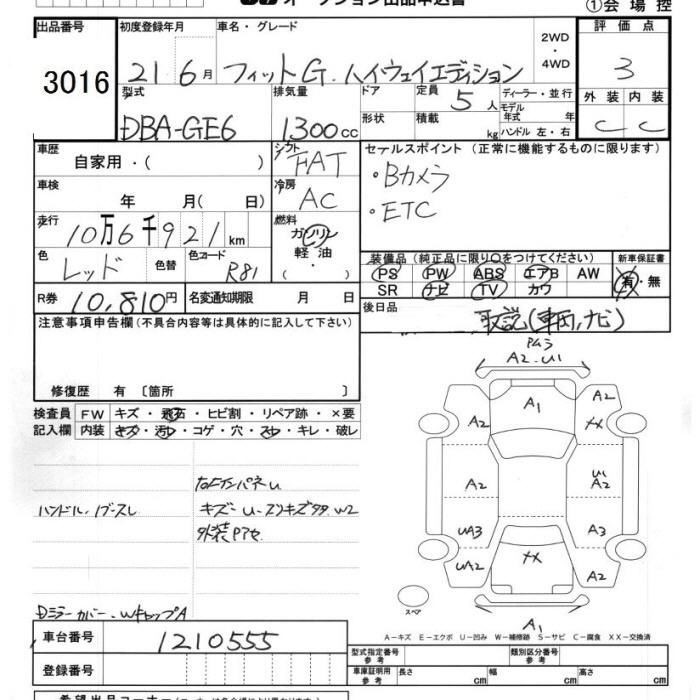 オークション出品申込書
①会場控
出品番号
3016
初度登録年月
21 6月
車名・グレード
フィットG.ハイウェイエディション
2WD
・
4WD
評価点
3
外装 内装
C C
型式
DBA-GE6
排気量
1300cc
ドア
形状
定員 5人
積載 kg
ディーラー・並行
モデル年式 年
ハンドル 左・右
車歴
自家用・( )
シフト
FAT
セールスポイント (正常に機能するものに限ります)
・Bカメラ
・ETC
車検
年 月( 日)
冷房
AC
走行
10万6千921km
燃料
ガソリン
軽油
( ・ )
色
レッド
色替
色コード
R81
装備品(純正品に限り○をつけてください)
PS PW ABS エアB AW
SR ナビ TV カワ
新車保証書
有・無
R券 10,810円
名変通知期限 月 日
後日品
取説(車両,ナビ)
注意事項申告欄(不具合内容等は具体的に記入して下さい)
修復歴 有〔箇所 〕
検査員
記入欄
FW キズ・飛石・ヒビ割・リペア跡・×要
内装 キズ・汚れ・コゲ・穴・スレ・キレ・破レ
A2.U1
A1
A2
A2
U1
A2
UA3
A3
UA2
A2
A1
スペア
ハンドル.ノブスレ
外装Pアセ
Dミラーカバー.WキャップA
A−キズ E−エクボ U−凹み W−補修跡 S−サビ C−腐食 XX−交換済
車台番号
1210555
登録番号
型式指定番号
参考
類別区分番号
参考
車庫証明用
参考
長さ cm
幅 cm
高さ cm